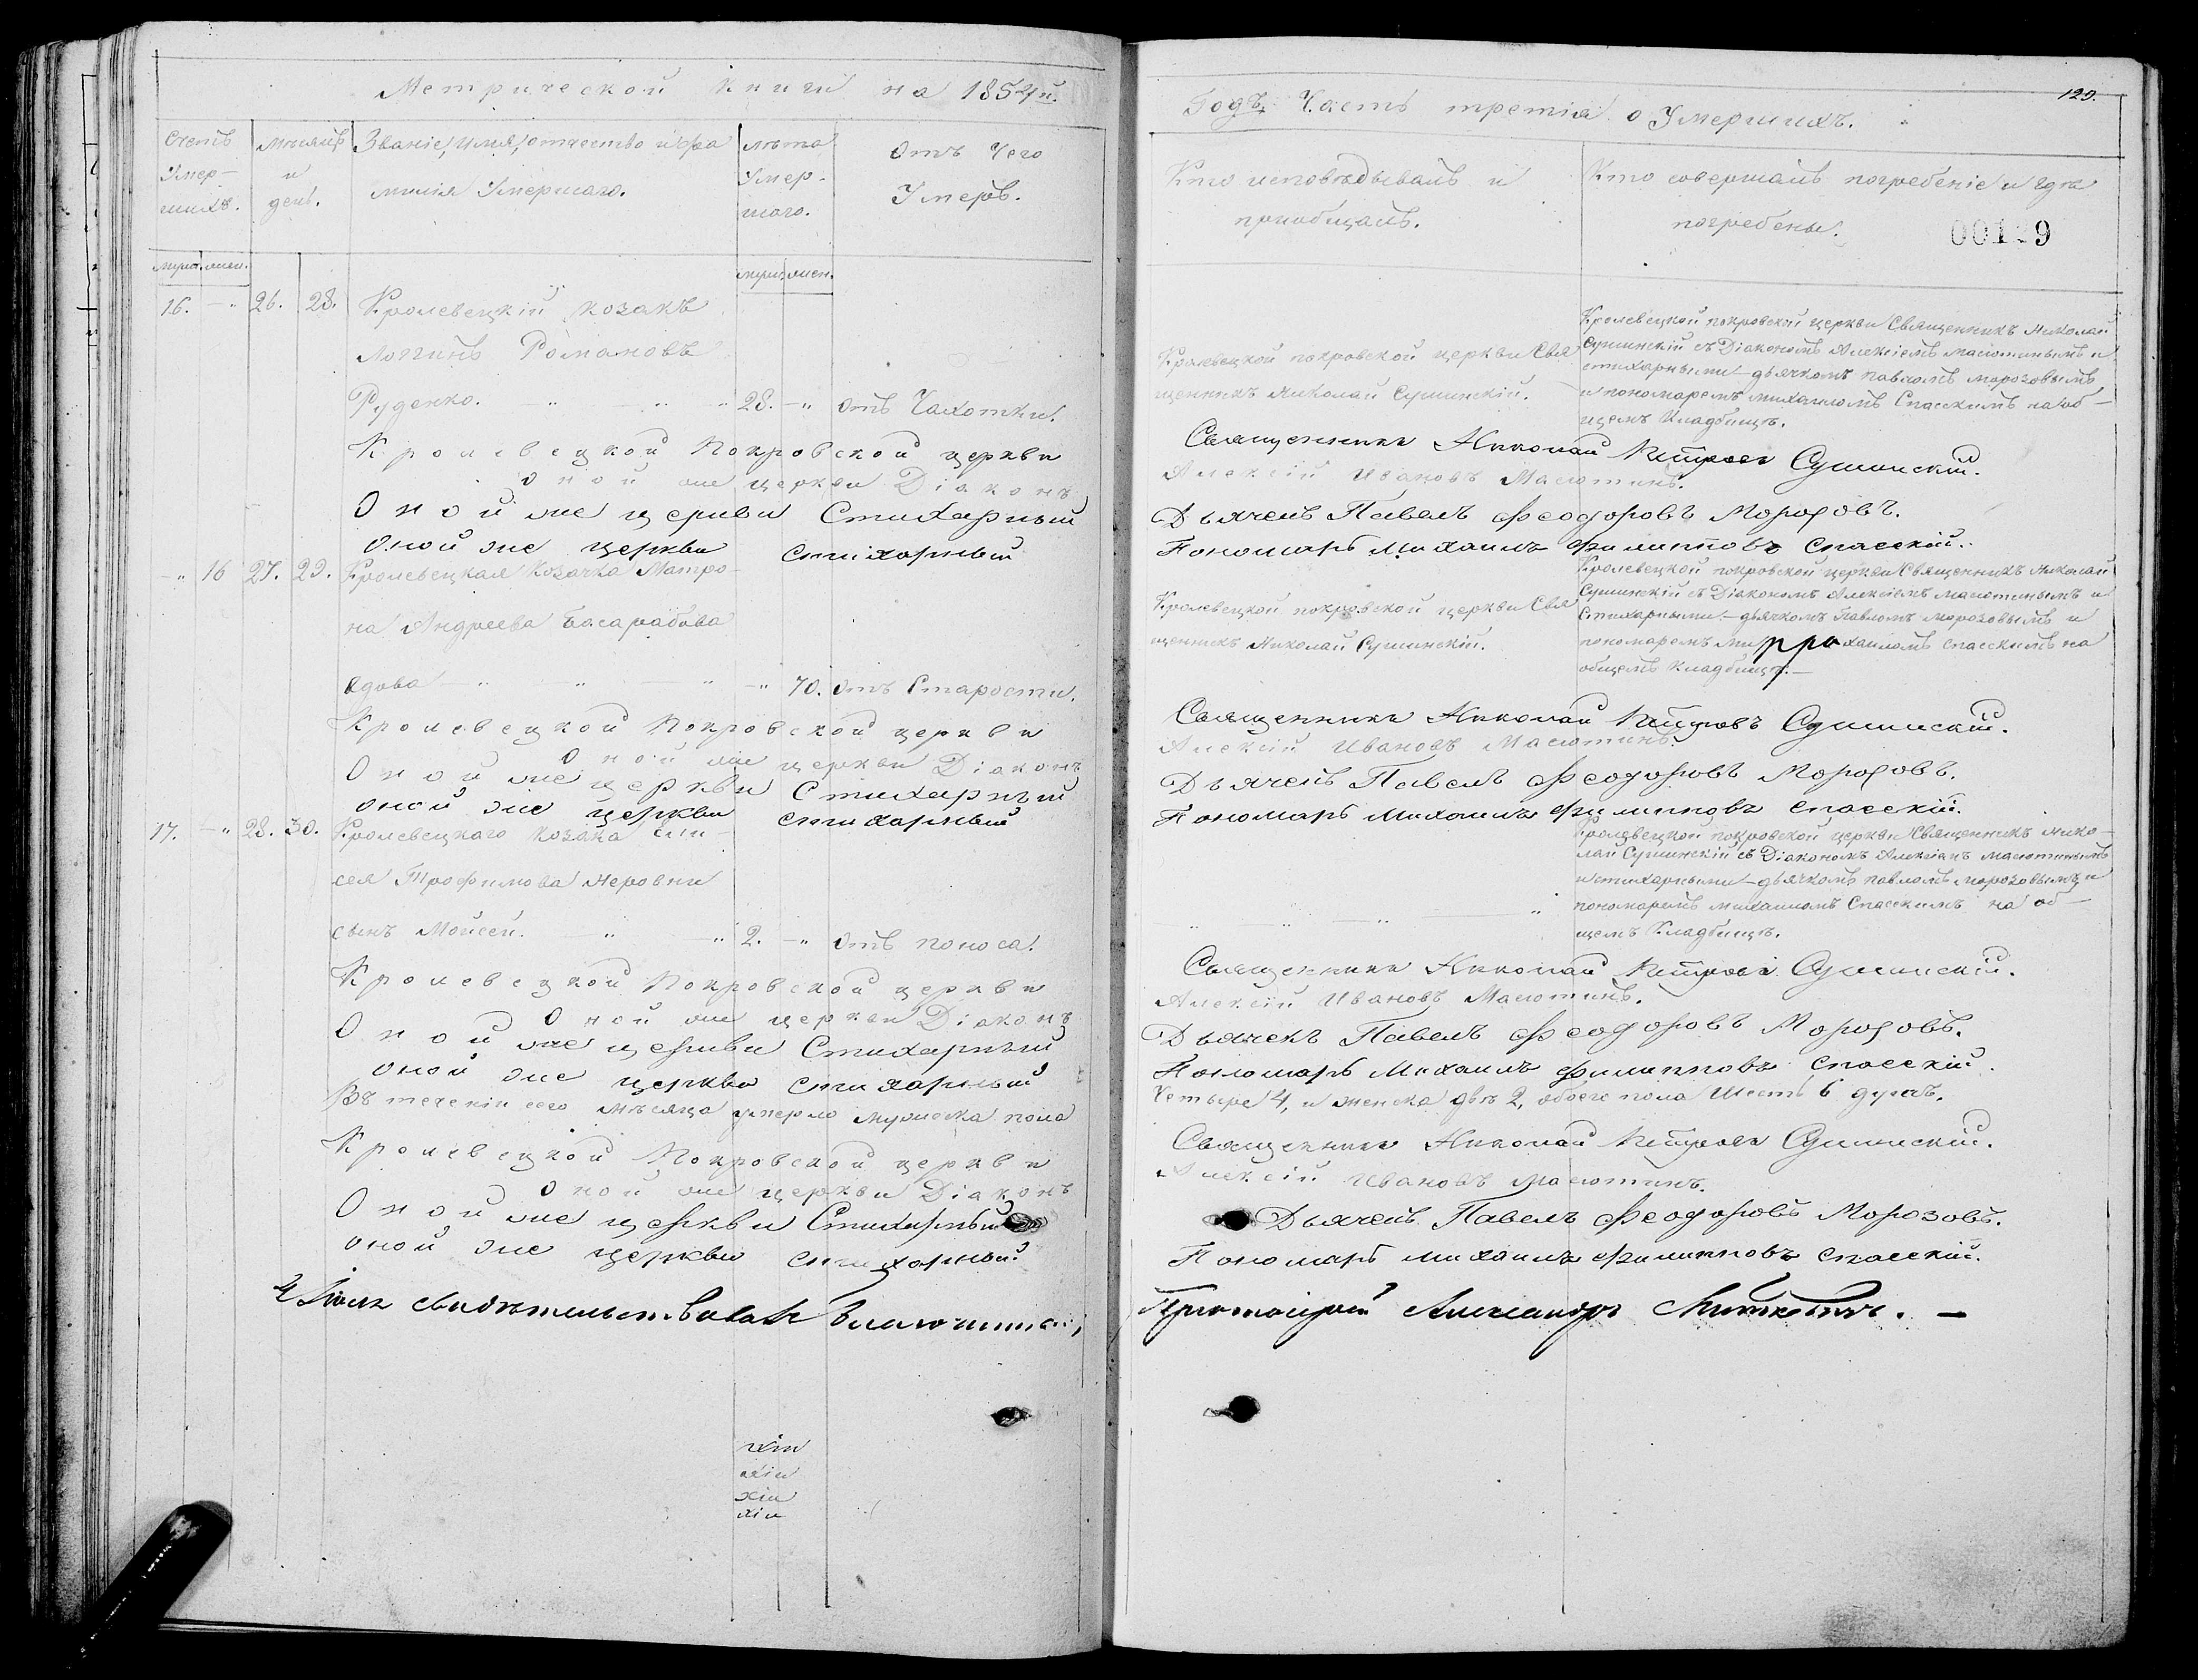 Метрической книги на 1854й.
Счетъ Умер-шихъ.
Мѣсяцъ и день.
Званіе, имя, отчество и фа
милія Умершаго.
лѣта Умер-шаго.
Отъ Чего
Умеръ.
муж. жен.
муж. жен.
16. - " 26. 28. Кролевецкій козакъ
Логинъ Романовъ
Руденко. - " - " - " 28. - " отъ Чахотки.
Кролевецкой Покровской церкви
Оной же церкви Діаконъ
Оной же церкви Стихарный
Оной же церкви стихарный
- " 16 27. 29. Кролевецкая козачка Матро-
на Андреева Басарабова
вдова - " - " - " - " 70. отъ Старости.
Кролевецкой Покровской церкви
Оной же церкви Діаконъ
Оной же церкви Стихарный
оной же церкви стихарный
17. - " 28. 30. Кролевецкаго козака
сея Трофимова Неровни
сынъ Мойсей. - " - " 2. - " отъ поноса.
Кролевецкой Покровской церкви
Оной же церкви Діаконъ
Оной же церкви Стихарный
оной же церкви стихарный
Въ теченіи сего мѣсяца умерло мужеска пола
Кролевецкой Покровской церкви
Оной же церкви Діаконъ
Оной же церкви Стихарный
оной же церкви стихарный
свидѣтельствовалъ Благочинный,
129.
Годъ. Часть третія о Умершихъ.
Кто исповѣдывалъ и
пріобщалъ.
Кто совершалъ погребеніе и гдѣ
погребены.
Кролевецкой покровской церкви Свя
щенникъ Николай Сушинскій.
Кролевецкой покровской церкви Священникъ Николай
Сушинскій съ Діакономъ Алексіемъ Масютинымъ и
стихарными - дьячкомъ павломъ морозовымъ
и пономаремъ михаиломъ Спасскимъ на об-
щемъ Кладбищѣ.
Священникъ Николай Петровъ Сушинскій.
Алексій Ивановъ Масютинъ.
Дьячекъ Павелъ Феодоровъ Морозовъ.
Пономарь Михаилъ Филиповъ Спасскій.
Кролевецкой покровской церкви Свя
щенникъ Николай Сушинскій.
Кролевецкой покровской церкви Священникъ Николай
Сушинскій съ Діакономъ Алексіемъ масютинымъ и
Стихарными - дьячкомъ Павломъ морозовымъ и
пономаремъ михаиломъ спасскимъ на
общемъ Кладбищѣ. -
Священникъ Николай Петровъ Сушинскій.
Алексій Ивановъ Масютинъ.
Дьячекъ Павелъ Феодоровъ Морозовъ.
Пономарь Михаилъ Филиповъ спасскій.
Кролевецкой покровской церкви Священникъ Нико-
лай Сушинскій съ Діакономъ Алексіемъ масютинымъ
и стихарными - дьячкомъ павломъ морозовымъ и
пономаремъ михаиломъ Спасскимъ на об-
щемъ Кладбищѣ.
Священникъ Николай Петровъ Сушинскій.
Алексій Ивановъ Масютинъ.
Дьячекъ Павелъ Феодоровъ Морозовъ.
Пономарь Михаилъ Филиповъ Спасскій.
Четыре 4, и женска двѣ 2, обоего пола Шесть 6 душъ.
Священникъ Николай Петровъ Сушинскій.
Алексій Ивановъ Масютинъ.
Дьячекъ Павелъ Феодоровъ Морозовъ.
Пономарь Михаилъ Филиповъ Спасскій.
Протоіерей Александръ